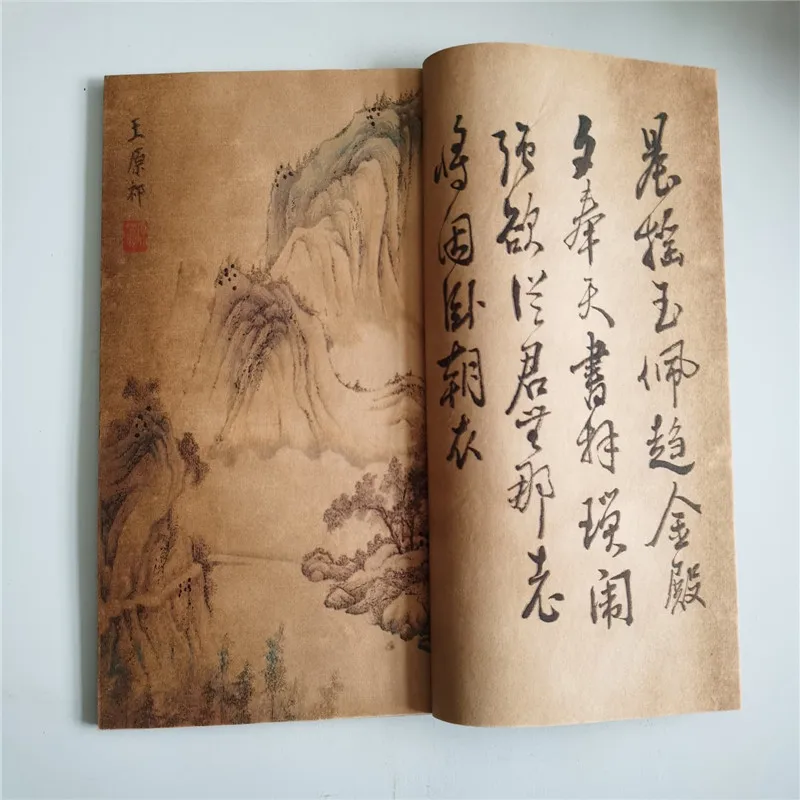 晨摇玉佩趋金殿
夕奉天書拜瑣闱
强欲從君無那老
将因卧朝衣
王原祁